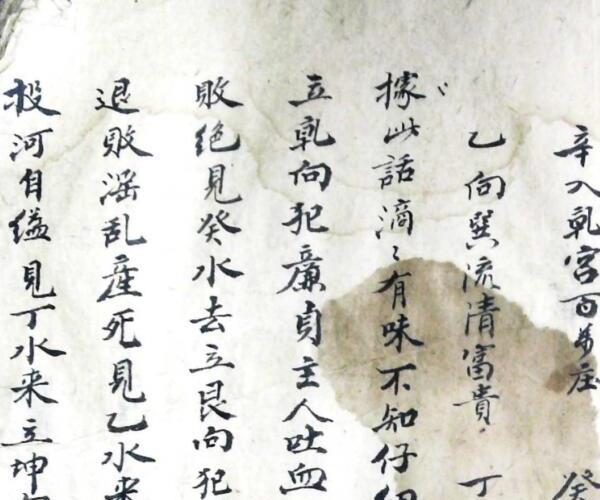 辛入乹宫百萬庄 癸
乙向巽流清富貴 丁
據此話滴〻有味不知仔細
立乹向犯廉貞主人吐血
敗絕見癸水去立艮向犯
退敗淫乱産死見乙水来
投河自缢見丁水来立坤向